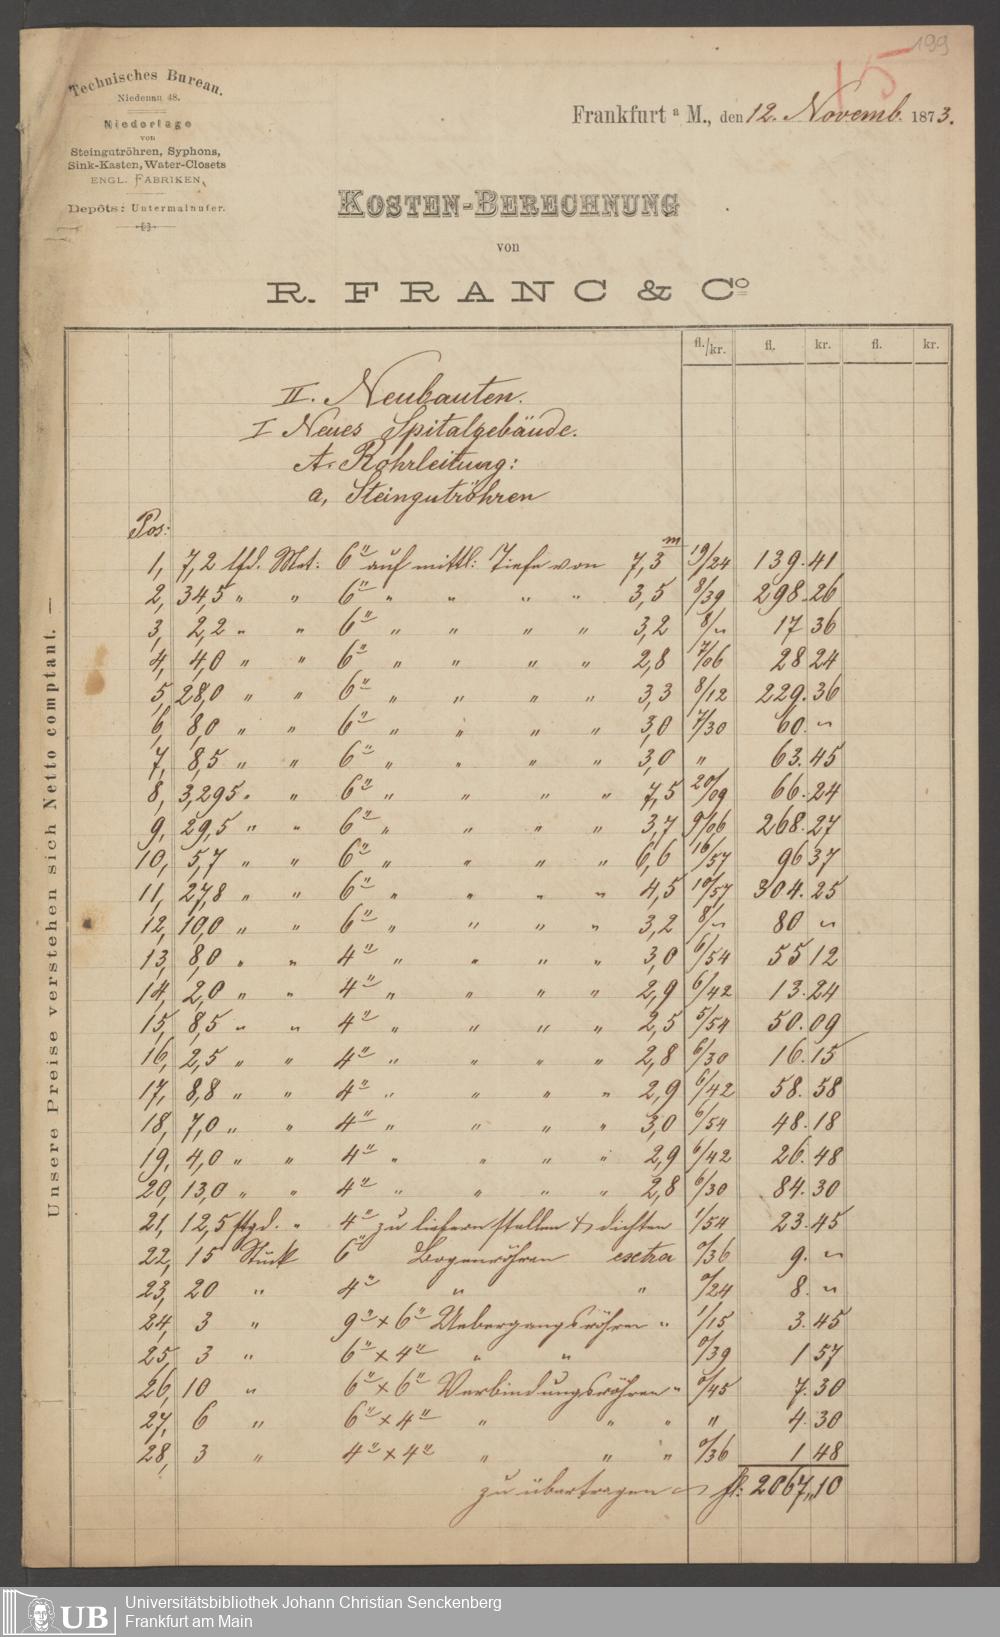 199
15
Technisches Bureau.
Niedenau 48.
Niederlage
von
Steingutröhren, Syphons,
Sink-Kasten, Water-Closets
ENGL. FABRIKEN,
Depôts: Untermainufer.
Frankfurt a M., den 12. Novemb. 1873.
KOSTEN-BERECHNUNG
von
R. FRANC & Co
fl./kr. fl. kr. fl. kr.
II. Neubauten.
I Neues Spitalgebäude.
A. Rohrleitung:
a, Steingutröhren
Pos:
1, 7,2 lfd. Met: 6" auf mittl: Tiefe von 7,3 m 19/24 139. 41
2, 34,5 " " 6" " " " " 3,5 8/39 298. 26
3, 2,2 " " 6" " " " " 3,2 8/~ 17 36
4, 4,0 " " 6" " " " " 2,8 7/06 28 24
5, 28,0 " " 6" " " " " 3,3 8/12 229. 36
6, 8,0 " " 6" " " " " 3,0 7/30 60. ~
7, 8,5 " " 6" " " " " 3,0 " 63. 45
8, 3,295 " " 6" " " " " 7,5 20/09 66. 24
9, 29,5 " " 6" " " " " 3,7 9/06 268. 27
10, 5,7 " " 6" " " " " 6,6 16/57 96 37
11, 27,8 " " 6" " " " " 4,5 10/57 304. 25
12, 10,0 " " 6" " " " " 3,2 8/~ 80 ~
13, 8,0 " " 4" " " " " 3,0 6/54 55 12
14, 2,0 " " 4" " " " " 2,9 6/42 13. 24
15, 8,5 " " 4" " " " " 2,5 5/54 50. 09
16, 2,5 " " 4" " " " " 2,8 6/30 16. 15
17, 8,8 " " 4" " " " " 2,9 6/42 58. 58
18, 7,0 " " 4" " " " " 3,0 6/54 48. 18
19, 4,0 " " 4" " " " " 2,9 6/42 26. 48
20, 13,0 " " 4" " " " " 2,8 6/30 84. 30
21, 12,5 stgd. " 4" zu liefern stellen & dichten 1/54 23. 45
22, 15 Stück 6" Bogenröhren exctra 0/36 9. ~
23, 20 " 4" " " 0/24 8. ~
24, 3 " 9" x 6" Uebergangsröhren " 1/15 3. 45
25, 3 " 6" x 4" " " 0/39 1 57
26, 10 " 6" x 6" Verbindungsröhren " 0/45 7. 30
27, 6 " 6" x 4" " " " " 4. 30
28, 3 " 4" x 4" " " " 0/36 1 48
zu übertragen ~ fl: 2067,,10
Unsere Preise verstehen sich Netto comptant. —
UB
Universitätsbibliothek Johann Christian Senckenberg
Frankfurt am Main